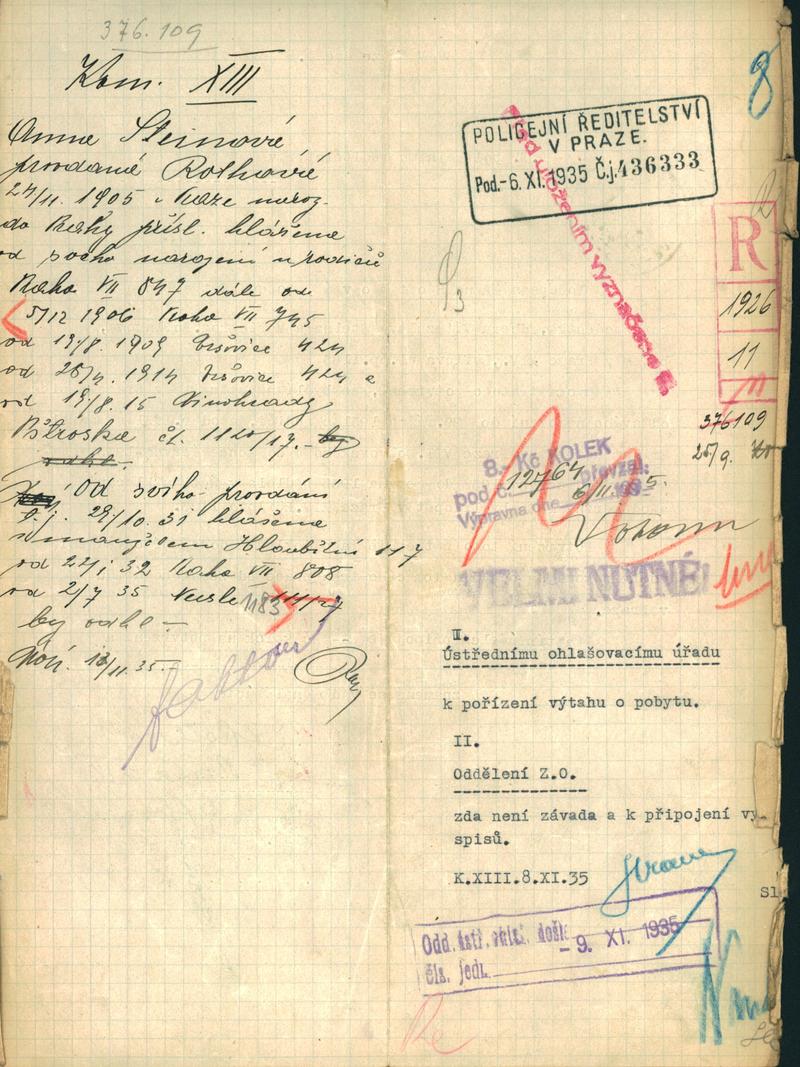 376.109
Kom. XIII
Anna Steinové
provdané Rothové
1905 v Praze naroz.
do Prahy přísl. hlášena
od svého narození u rodičů
Praha VII 847 dále od
5/12 1906 Praha VII 745
od 19/8. 1909 Vršovice 424
od 1914 Vršovice 424 a
od 19/8. 15 Vinohrady
Pštroska čt. 1120/17.
Od svého provdání
t. j. 29/10. 31 hlášena
s manželem Hloubětín 117
od 22/1 32 Praha VII 808
od 2/7 35 Nusle 1183
35.
8
POLICEJNÍ ŘEDITELSTVÍ
V PRAZE.
Pod. -6. XI. 1935 Č.j. 436333
Před uložením vyznačeno
R
1926
11
376109
25/9.
8.- Kč KOLEK
pod č. 12764 převzal:
Výpravna dne 6/11. 1935.
VELMI NUTNÉ!
I.
Ústřednímu ohlašovacímu úřadu
k pořízení výtahu o pobytu.
II.
Oddělení Z.O.
zda není závada a k připojení vy
spisů.
K.XIII.8.XI.35
Sl
Odd. ústř. ohlaš. došlo
-9. XI. 1935
čís. jedn.